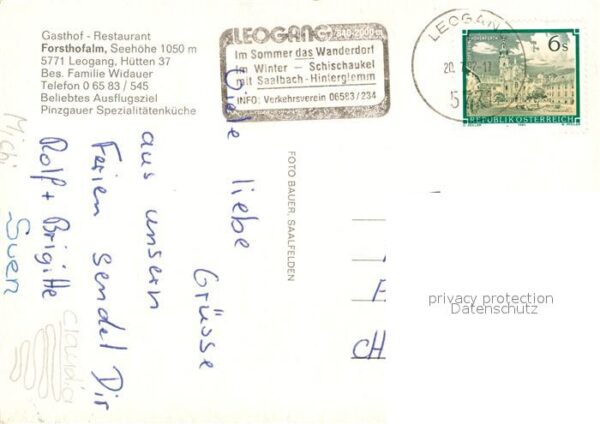 Gasthof - Restaurant
Forsthofalm, Seehöhe 1050 m
5771 Leogang, Hütten 37
Bes. Familie Widauer
Telefon 0 65 83 / 545
Beliebtes Ausflugsziel
Pinzgauer Spezialitätenküche
LEOGANG 840-2000m
Im Sommer das Wanderdorf
im Winter – Schischaukel
mit Saalbach-Hinterglemm
INFO: Verkehrsverein 06583/234
LEOGANG
20.
5
6s
REPUBLIK ÖSTERREICH
Viele liebe
Grüsse
aus unsern
Ferien sendet Dir
Rolf + Brigitte
Michi
Sven
Claudia
FOTO BAUER, SAALFELDEN
CH
privacy protection
Datenschutz